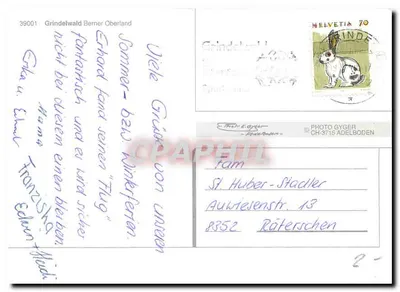 39001 Grindelwald Berner Oberland
Viele Grüße von unseren
Sommer- bzw Winterferien.
Erhard fand seinen "Flug"
fantastisch und es wird sicher
nicht bei diesem einen bleiben.
Erika u. Erhard
Mama
Franziska
Edwin + Heidi
HELVETIA 70
GRINDE
Grindelwald
© PHOTO GYGER
CH-3715 ADELBODEN
CPARTH
Fam
St Huber-Stadler
Auwiesenstr. 13
8352 Räterschen
2-